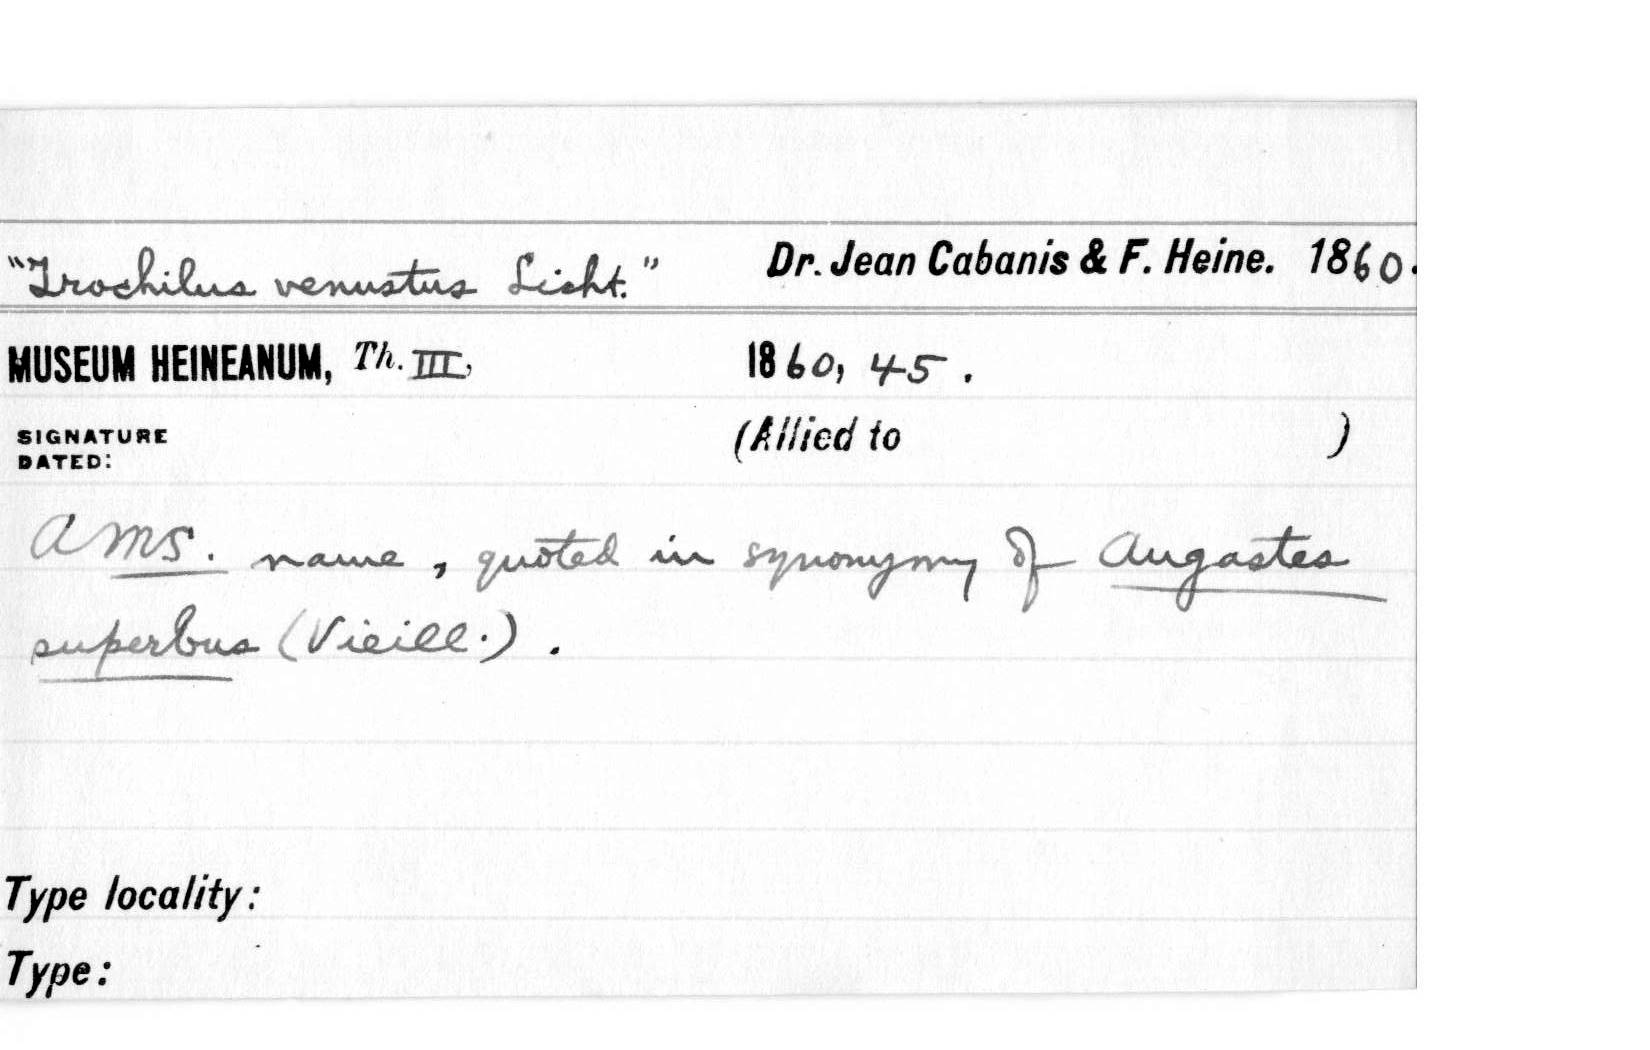 "Trochilus venustus Licht." Dr. Jean Cabanis & F. Heine. 1860.
MUSEUM HEINEANUM, Th. III, 1860, 45.
SIGNATURE
DATED:
(Allied to )
A MS. name, quoted in synonymy of Augastes
superbus (Vieill.).
Type locality:
Type: